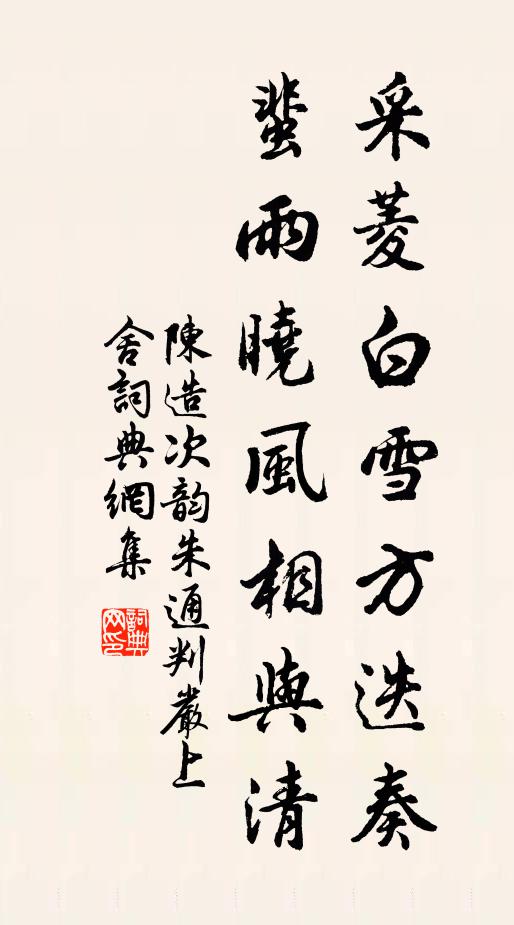 采菱白雪方迭奏
蜚雨曉風相與清
陳造次韵朱通判嚴上
舍詞典網集
詞典網印